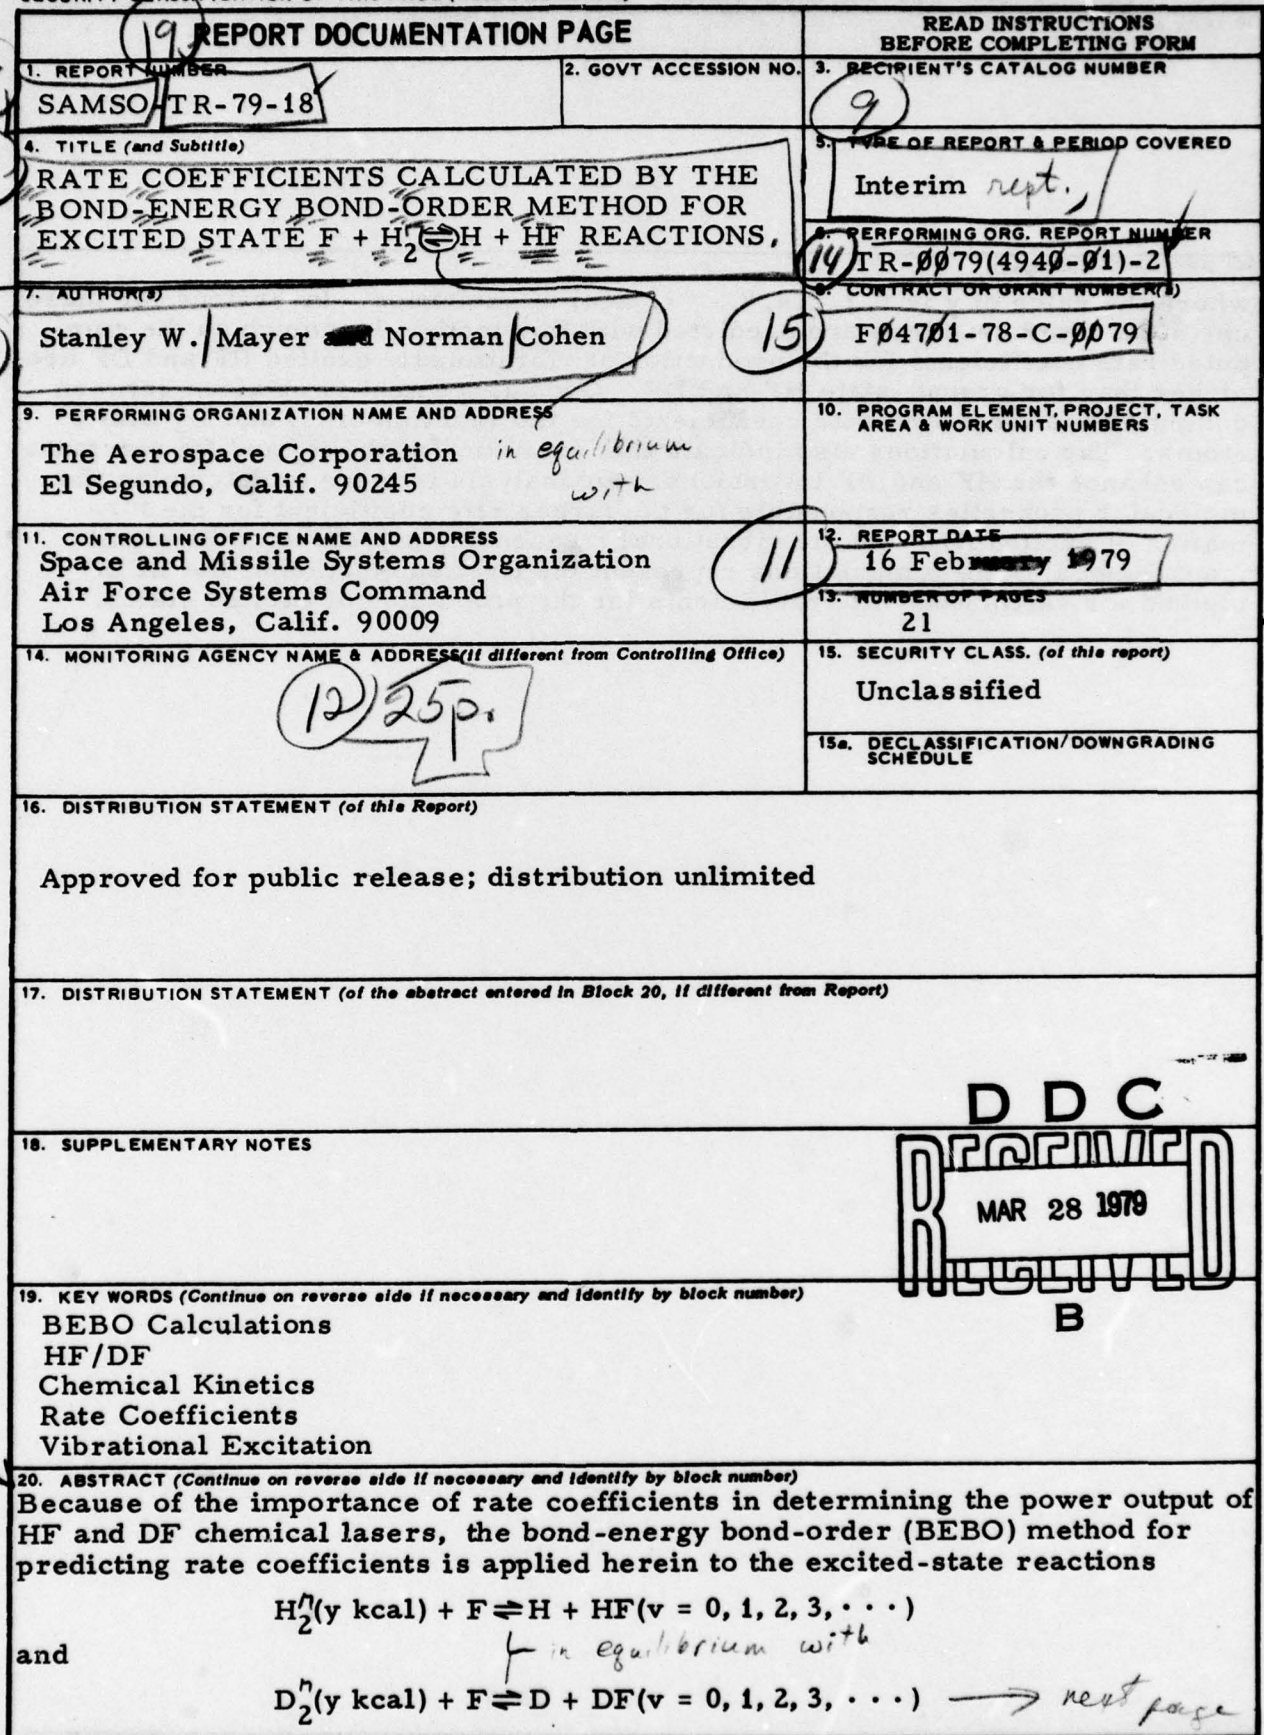 19 REPORT DOCUMENTATION PAGE
READ INSTRUCTIONS
BEFORE COMPLETING FORM
1. REPORT NUMBER
SAMSO-TR-79-18
2. GOVT ACCESSION NO.
3. RECIPIENT'S CATALOG NUMBER
9
4. TITLE (and Subtitle)
RATE COEFFICIENTS CALCULATED BY THE
BOND-ENERGY BOND-ORDER METHOD FOR
EXCITED STATE F + H2 ⇌ H + HF REACTIONS.
5. TYPE OF REPORT & PERIOD COVERED
Interim rept.,
6. PERFORMING ORG. REPORT NUMBER
14 TR-0079(4940-01)-2
7. AUTHOR(s)
Stanley W. Mayer and Norman Cohen
8. CONTRACT OR GRANT NUMBER(s)
15 F04701-78-C-0079
9. PERFORMING ORGANIZATION NAME AND ADDRESS
The Aerospace Corporation
El Segundo, Calif. 90245
in equilibrium
with
10. PROGRAM ELEMENT, PROJECT, TASK
AREA & WORK UNIT NUMBERS
11. CONTROLLING OFFICE NAME AND ADDRESS
Space and Missile Systems Organization
Air Force Systems Command
Los Angeles, Calif. 90009
12. REPORT DATE
11 16 February 1979
13. NUMBER OF PAGES
21
14. MONITORING AGENCY NAME & ADDRESS(if different from Controlling Office)
12 25p.
15. SECURITY CLASS. (of this report)
Unclassified
15a. DECLASSIFICATION/DOWNGRADING
SCHEDULE
16. DISTRIBUTION STATEMENT (of this Report)
Approved for public release; distribution unlimited
17. DISTRIBUTION STATEMENT (of the abstract entered in Block 20, if different from Report)
18. SUPPLEMENTARY NOTES
D D C
RECEIVED
MAR 28 1979
RECEIVED
B
19. KEY WORDS (Continue on reverse side if necessary and identify by block number)
BEBO Calculations
HF/DF
Chemical Kinetics
Rate Coefficients
Vibrational Excitation
20. ABSTRACT (Continue on reverse side if necessary and identify by block number)
Because of the importance of rate coefficients in determining the power output of
HF and DF chemical lasers, the bond-energy bond-order (BEBO) method for
predicting rate coefficients is applied herein to the excited-state reactions
H2^n(y kcal) + F ⇌ H + HF(v = 0, 1, 2, 3, · · · )
and
in equilibrium with
D2^n(y kcal) + F ⇌ D + DF(v = 0, 1, 2, 3, · · · ) → next page